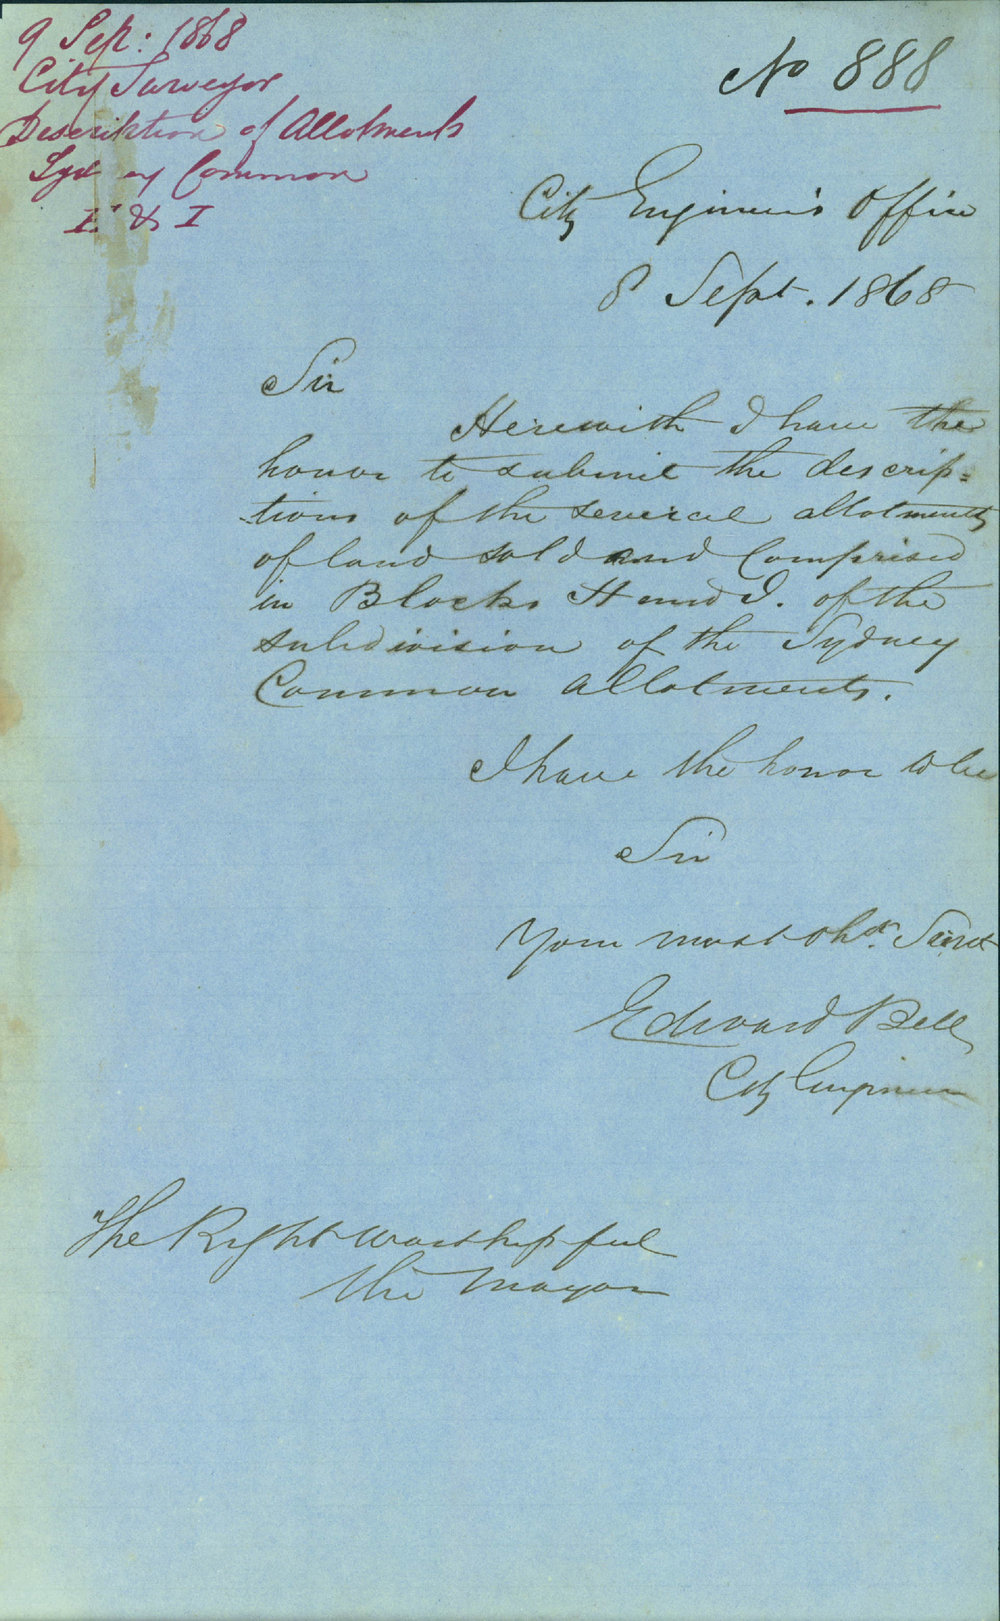 9 Sep: 1868
City Surveyor
Description of Allotments
Sydney Common
& I
No 888
City Engineer's Office
8 Sept. 1868
Sir
Herewith I have the
honor to submit the descrip=
-tions of the several allotments
of land sold and Comprised
in Blocks H and I. of the
subdivision of the Sydney
Common allotments.
I have the honor to be
Sir
Your most obdt. Servt
Edward Bell
City Engineer
The Right Worshipful
the Mayor